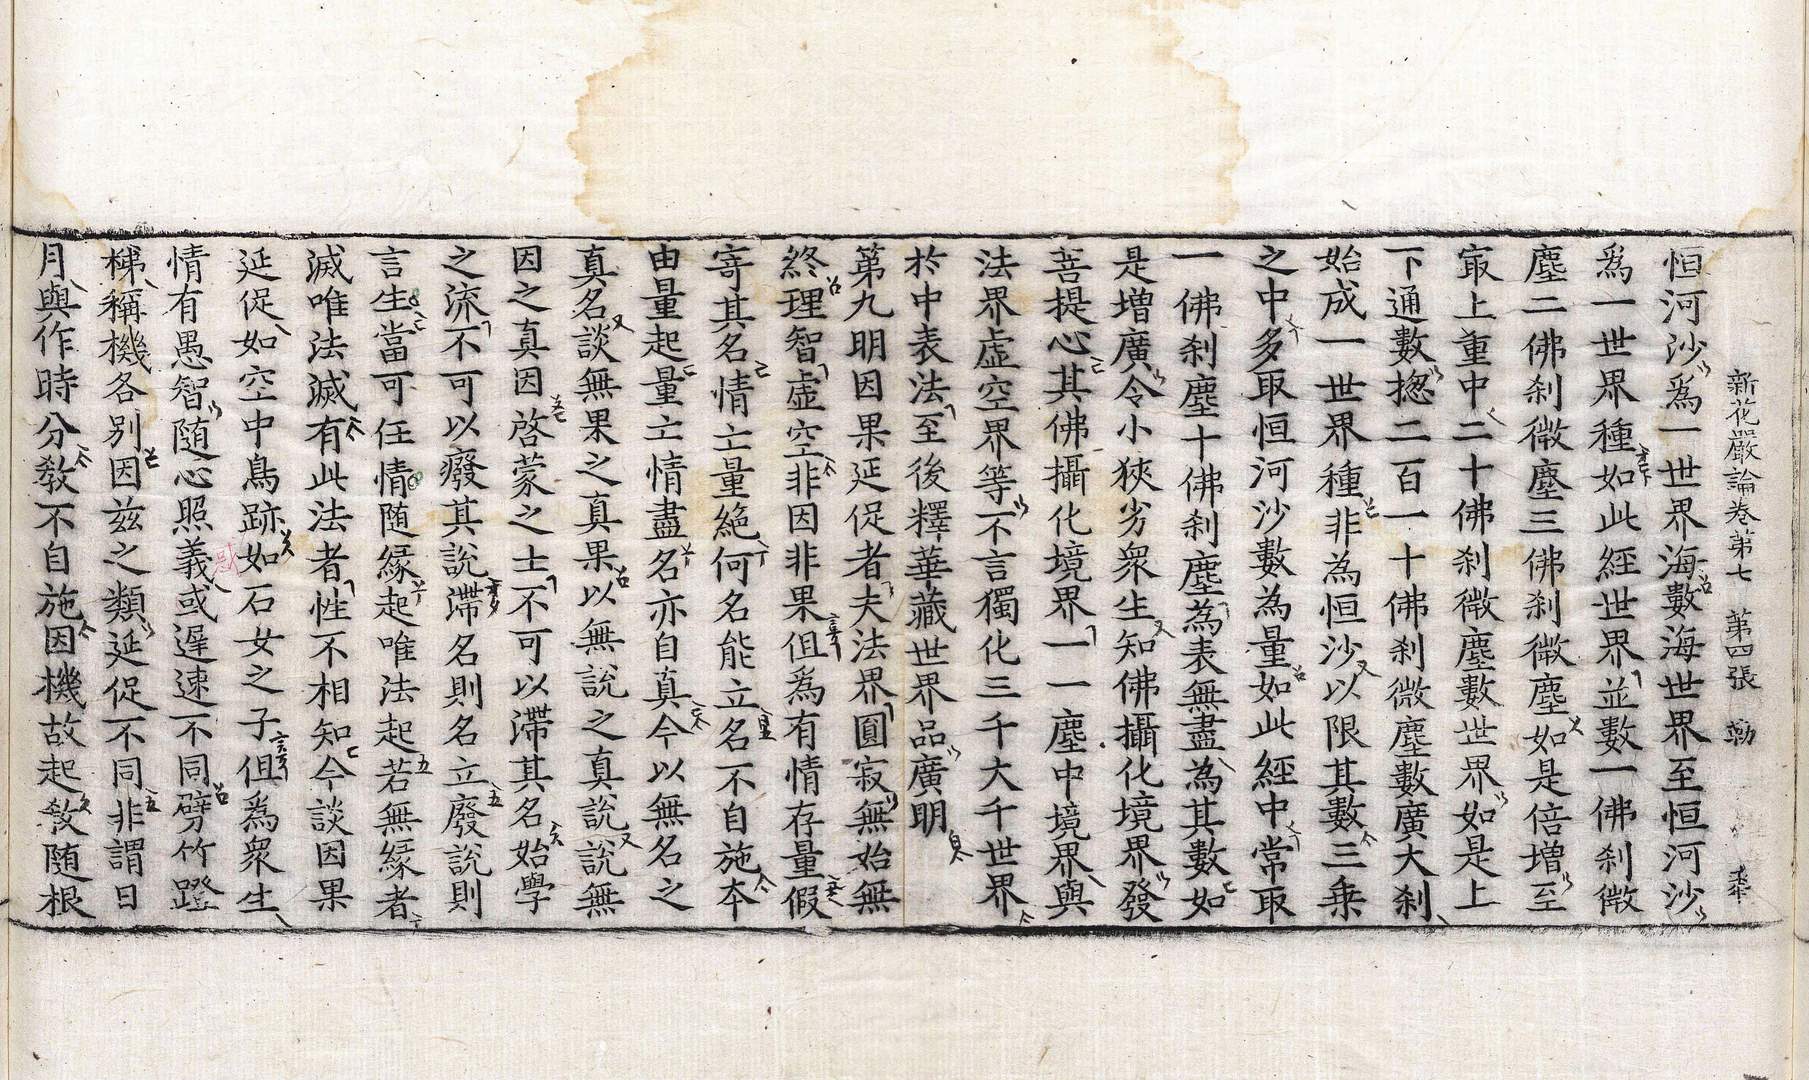 新花嚴論卷第七　第四張　勒
恒河沙為一世界海數海世界至恒河沙
為一世界種如此經世界並數一佛刹微
塵二佛刹微塵三佛刹微塵如是倍增至
㝡上重中二十佛刹微塵數世界如是上
下通數揔二百一十佛刹微塵數廣大刹
始成一世界種非為恒沙以限其數三乗
之中多取恒河沙數為量如此經中常取
一佛刹塵十佛刹塵為表無盡為其數如
是增廣令小狹劣衆生知佛攝化境界發
菩提心其佛攝化境界一一塵中境界與
法界虛空界等不言獨化三千大千世界
於中表法至後釋華藏世界品廣明
第九明因果延促者夫法界圓寂無始無
終理智虛空非因非果但為有情存量假
寄其名情亡量絶何名能立名不自施本
由量起量亡情盡名亦自真今以無名之
真名談無果之真果以無說之真說說無
因之真因啓蒙之士不可以滯其名始學
之流不可以癈其說滯名則名立廢說則
言生當可任情随緣起唯法起若無緣者
滅唯法滅有此法者性不相知今談因果
延促如空中鳥跡如石女之子但為衆生
情有愚智随心照義或遲速不同劈竹蹬
梯稱機各別因兹之類延促不同非謂日
月與作時分教不自施因機故起教随根